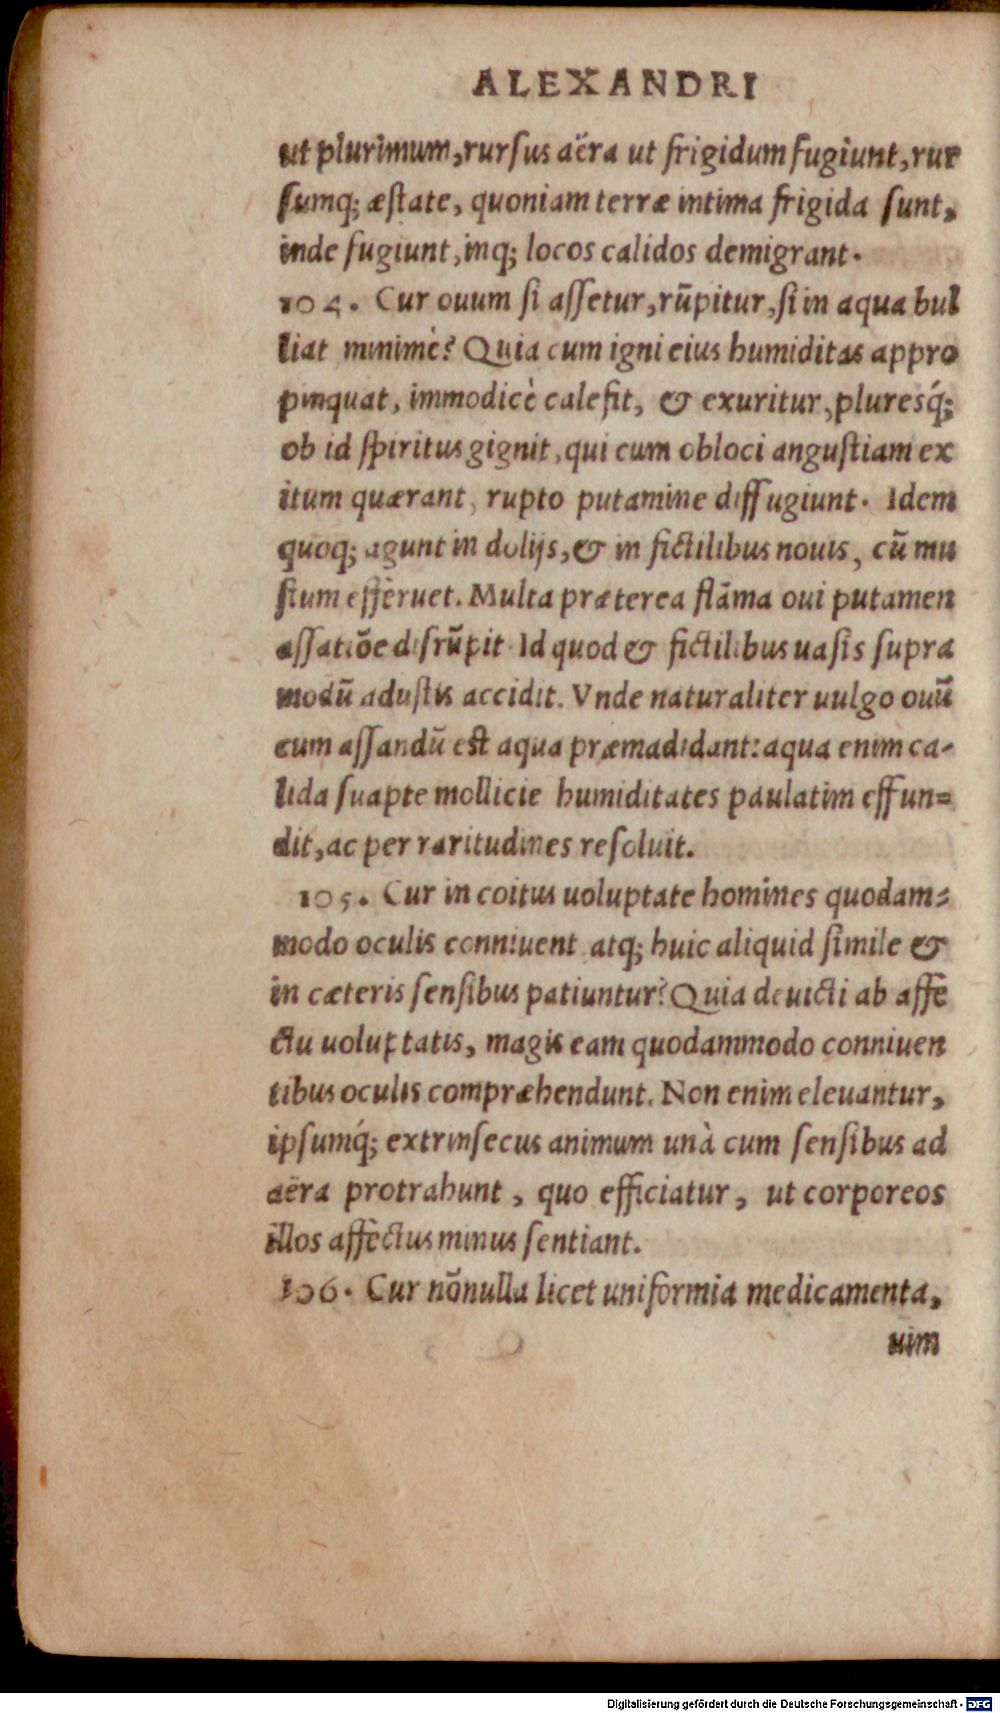 ALEXANDRI
ut plurimum, rursus aëra ut frigidum fugiunt, rur
sumq; æstate, quoniam terræ intima frigida sunt,
inde fugiunt, inq; locos calidos demigrant.
104. Cur ouum si assetur, rūpitur, si in aqua bul
liat minimè? Quia cum igni eius humiditas appro
pinquat, immodicè calefit, & exuritur, pluresq́;
ob id spiritus gignit, qui cum ob loci angustiam ex
itum quærant, rupto putamine diffugiunt. Idem
quoq; agunt in dolijs, & in fictilibus nouis, cū mu
stum efferuet. Multa præterea flāma oui putamen
assatiōe disrūpit Id quod & fictilibus uasis supra
modū adustis accidit. Vnde naturaliter uulgo ouū
cum assandū est aqua præmadidant: aqua enim ca-
lida suapte mollicie humiditates paulatim effun=
dit, ac per raritudines resoluit.
105. Cur in coitus uoluptate homines quodam=
modo oculis conniuent atq; huic aliquid simile &
in cæteris sensibus patiuntur? Quia deuicti ab affe
ctu uoluptatis, magis eam quodammodo conniuen
tibus oculis compræhendunt. Non enim eleuantur,
ipsumq́; extrinsecus animum unà cum sensibus ad
aëra protrahunt, quo efficiatur, ut corporeos
illos affectus minus sentiant.
106. Cur nōnulla licet uniformia medicamenta,
uim
Digitalisierung gefördert durch die Deutsche Forschungsgemeinschaft - DFG